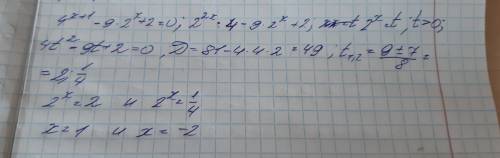 4^{x+1} - 9·2^x + 2 = 0; 2^{2x}·4 - 9·2^x + 2, 2^x = t, t>0;
4t² - 9t + 2 = 0, D = 81 - 4·4·2 = 49, t_{1,2} = \frac{9±7}{8} =
= 2; \frac{1}{4}
2^x = 2 и 2^x = \frac{1}{4}
x = 1 и x = -2